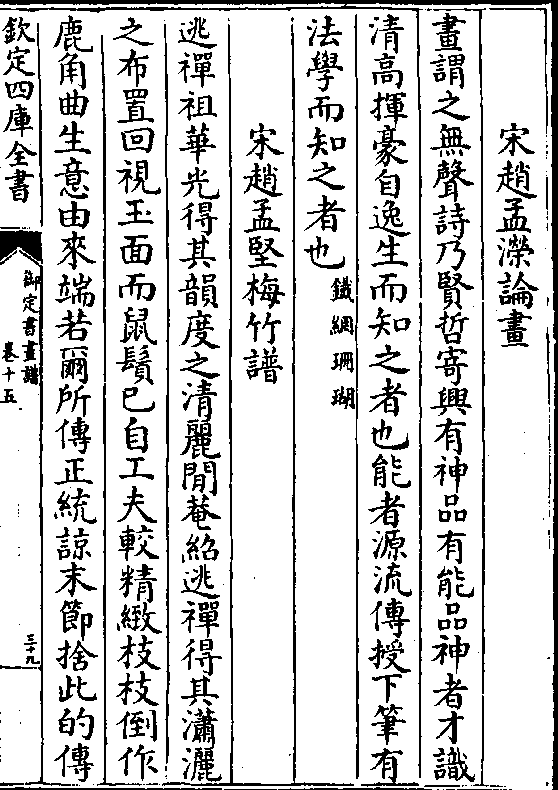 宋趙孟濚論畫
畫謂之無聲詩乃賢哲寄興有神品有能品神者才識
清高揮豪自逸生而知之者也能者源流傳授下筆有
法學而知之者也鐵網珊瑚
宋趙孟堅梅竹譜
逃禪祖華光得其韻度之清麗閒菴紹逃禪得其瀟灑
之布置回視玉面而鼠鬚已自工夫較精緻枝枝倒作
鹿角曲生意由來端若爾所傳正統諒末節捨此的傳
欽定四庫全書
御定書畫譜
卷十五
三十九